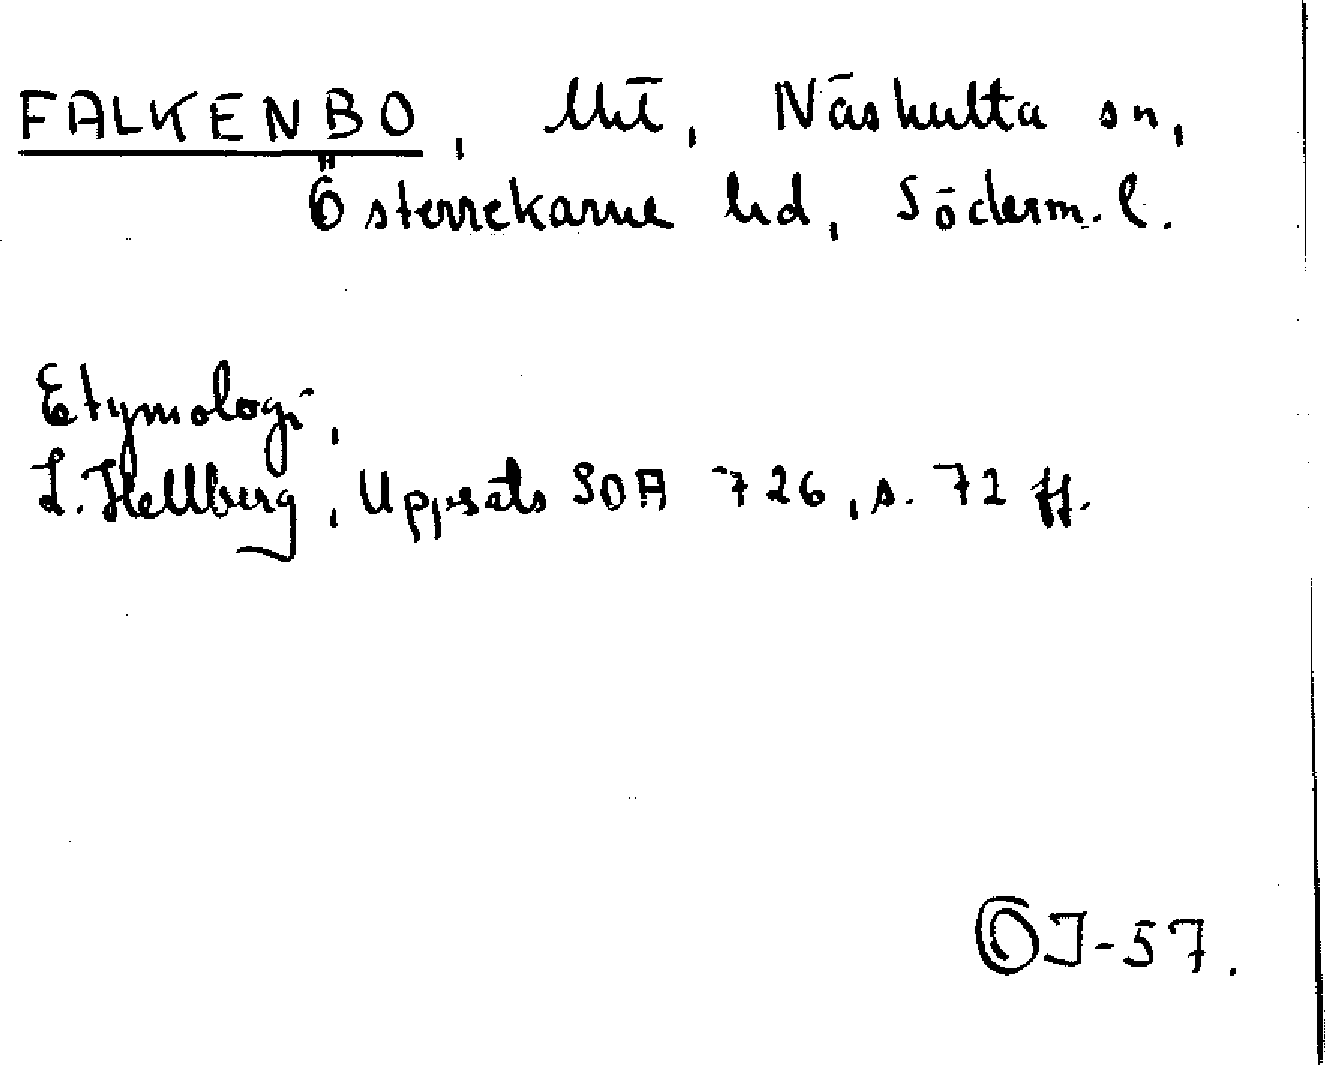 FALKENBO, Näshulta sn,
Österrekarne hd, Söderm. l.
Etymologi,
L. Hellberg, Uppsats SOA 726, s. 72 ff.
OJ-57.